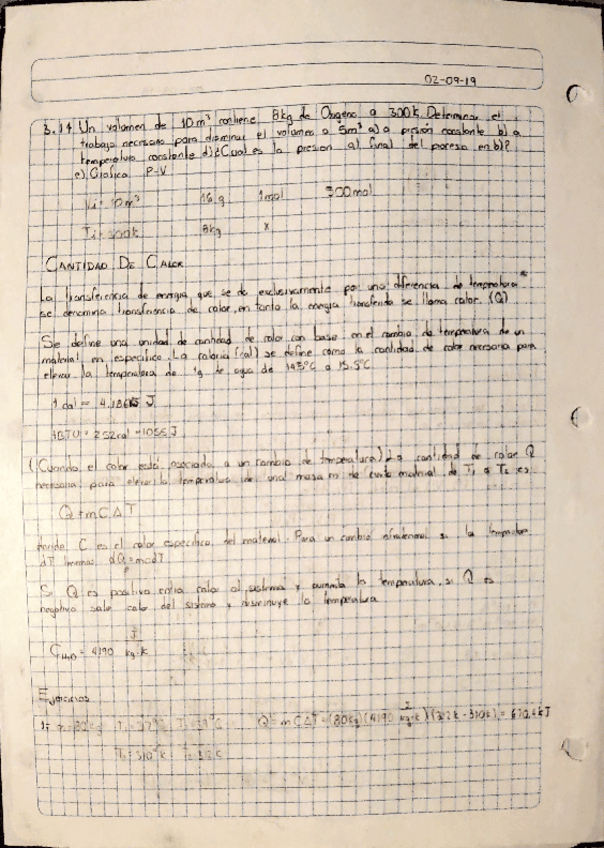 02-09-19
3.14 Un volumen de 10 m³ contiene 8kg de Oxigeno a 300k. Determinar el
trabajo necesario para disminuir el volumen a 5m³ a) a presión constante b) a
temperatura constante d) ¿Cual es la presion al final del proceso en b)?
e) Grafica P-V
Vi = 10m³ 16g 1mol 300mol
Ti = 300k 8kg x
CANTIDAD DE CALOR
La transferencia de energia que se da exclusivamente por una diferencia de temperatura
se denomina transferencia de calor, en tanto la energia transferida se llama calor. (Q)
Se define una unidad de cantidad de calor con base en el cambio de temperatura de un
material en especifico. La caloria (cal) se define como la cantidad de calor necesaria para
elevar la temperatura de 1g de agua de 14.5°C a 15.5°C
1 cal = J
1BTU = 252cal = 1055 J
(Cuando el calor está asociado a un cambio de temperatura) La cantidad de calor Q
necesaria para elevar la temperatura de una masa m de cierto material de T₁ a T₂ es
Q = mCΔT
donde C es el calor especifico del material. Para un cambio infinitesimal la temperatura
dT
Si Q es positivo entra calor al sistema y aumenta la temperatura, si Q es
negativo sale calor del sistema y disminuye la temperatura
= 4190 J/kg·k
Ejercicios
Q = mCΔT = (80kg)(4190 J/kg·k)